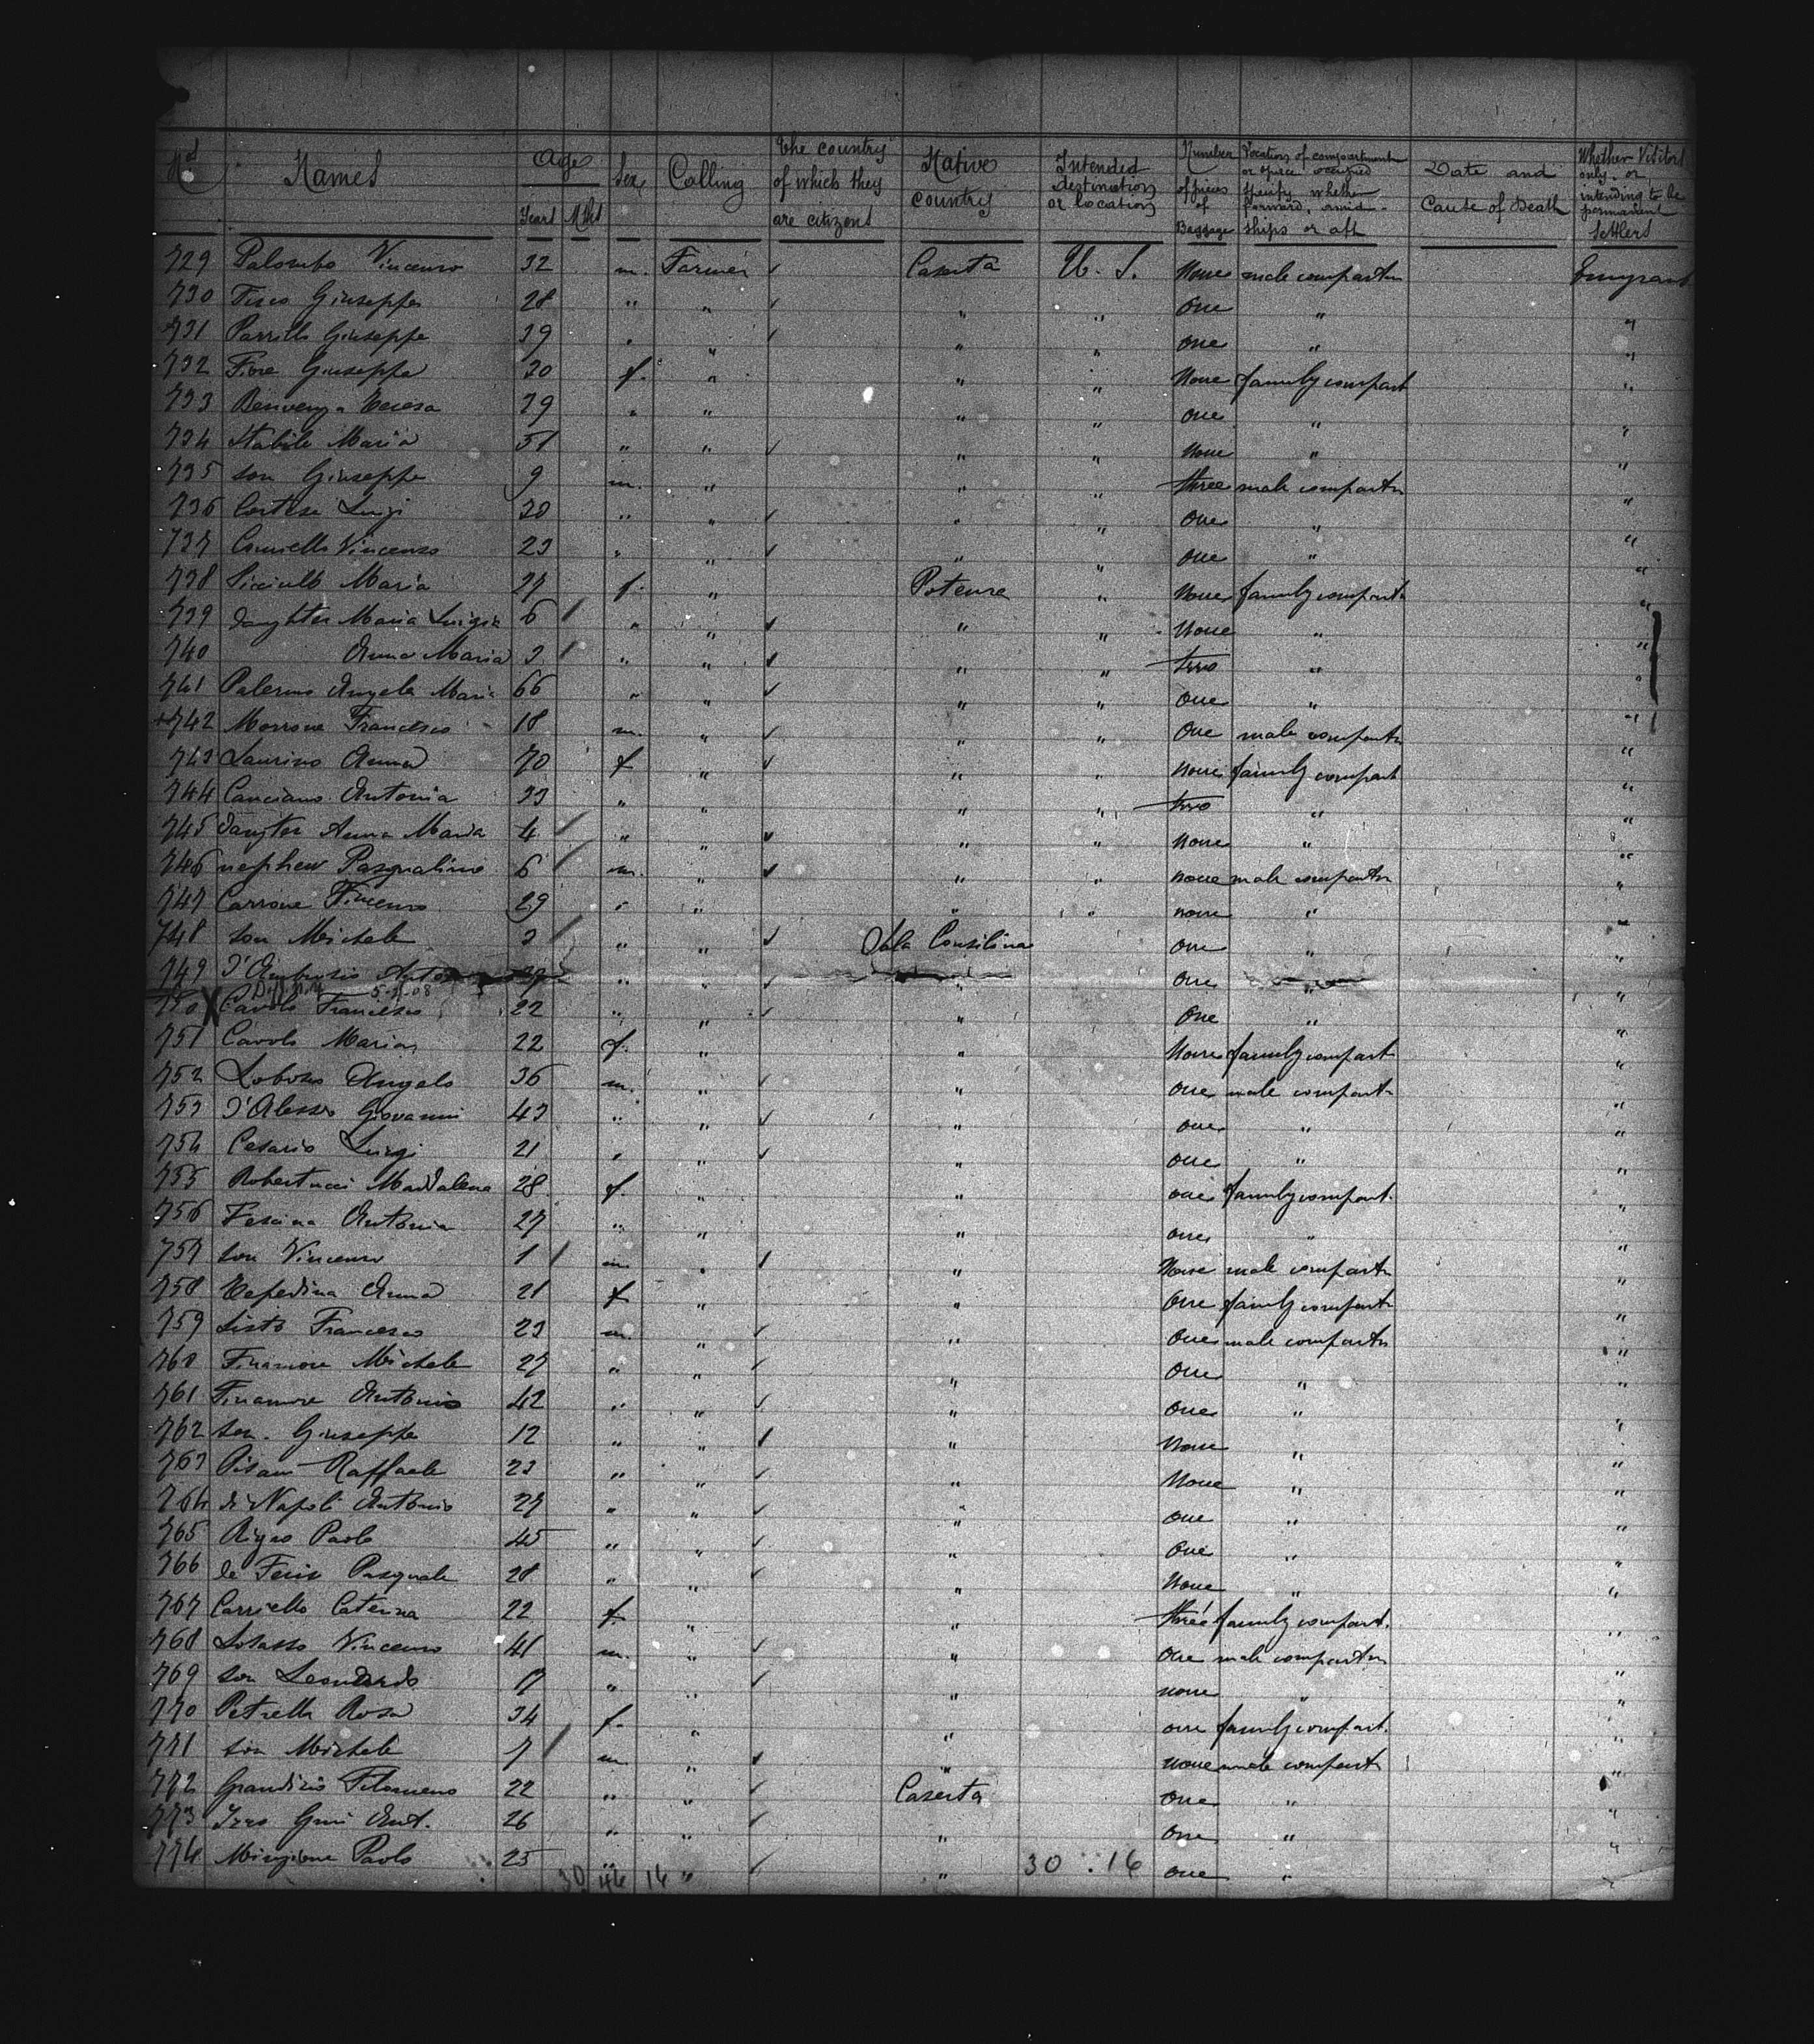 Nos Names Age Years Mths Sex Calling the country of which they are citizens Native country Intended destination or location Number of pieces of Baggage Location of compartment or space occupied specify whether forward, amid-ships or aft Date and Cause of Death Whether Visitors only, or intending to be permanent Settlers
729 Palombo Vincenzo 32 m. Farmer ✓ Caserta U. S. None male compartm Emigrant
730 Fisco Giuseppe 28 " " ✓ " " One " "
731 Parrillo Giuseppe 39 " " ✓ " " one " "
732 Fiore Giuseppa 30 f. " " " None family compart "
733 Benvenga Teresa 29 " " " " one " "
734 Stabile Maria 51 " " ✓ " " None " "
735 son Giuseppe 9 m. " " " three male compartm "
736 Cortese Luigi 30 " " ✓ " " One " "
737 Vincenzo 23 " " ✓ " " one " "
738 Maria 27 f. " Potenza " None family compartm "
739 daughter Maria Luigia 6 " " ✓ " " None " "
740 Anna Maria 3 " " ✓ " " two " "
741 Palermo Angela Maria 66 " " ✓ " " one " "
742 Morrone Francesco 18 m. " ✓ " " One male compartm "
743 Laurino Anna 70 f " ✓ " " none family compart "
744 Canciano Antonia 33 " " " " two " "
745 daugter Anna Maria 4 " " ✓ " " none " "
746 nephew Pasqualino 6 m. " ✓ " " none male compartm "
747 Carrone Vincenzo 29 " " " " none " "
748 son Michele 3 " " ✓ Sala Consilina one " "
749 D'Ambrosio " " ✓ " One " "
5-11-08
750 X Cavolo Francesco 22 " " ✓ " One " "
751 Cavolo Maria 22 f. " " None family compart "
752 Angelo 36 m. " ✓ " one male compart "
753 D'Alessio Giovanni 43 " " ✓ " one " "
754 Cesario Luigi 21 " " ✓ " one " "
755 Robertucci Maddalena 28 f. " " one family compart. "
756 Antonia 27 " " " one " "
757 son Vincenzo 1 m. " ✓ " None male compartm "
758 Tepedina Anna 21 f " " One family compartm "
759 Sisto Francesco 23 m. " ✓ " One male compartm "
760 Finamore Michele 27 " " ✓ " One " "
761 Finamore Antonio 42 " " ✓ " One " "
762 son Giuseppe 12 " " ✓ " None " "
763 Pisani Raffaele 23 " " ✓ " None " "
764 di Napoli Antonio 27 " " ✓ " one " "
765 Paolo 45 " " ✓ " One " "
766 Pasquale 28 " " ✓ " None " "
767 Carriello Caterina 22 f. " " three family compart. "
768 Lotasso Vincenzo 41 m. " ✓ " One male compartm "
769 son Leonardo 17 " " ✓ " none " "
770 Petrella Rosa 34 f. " " one family compart. "
771 son Michele 7 m " ✓ " none male compart "
772 Filomeno 22 " " ✓ Caserta one " "
773 Izzo Ant. 26 " " ✓ " one " "
774 Minzione Paolo 25 " " ✓ " one " "
30 46 14 30 . 16